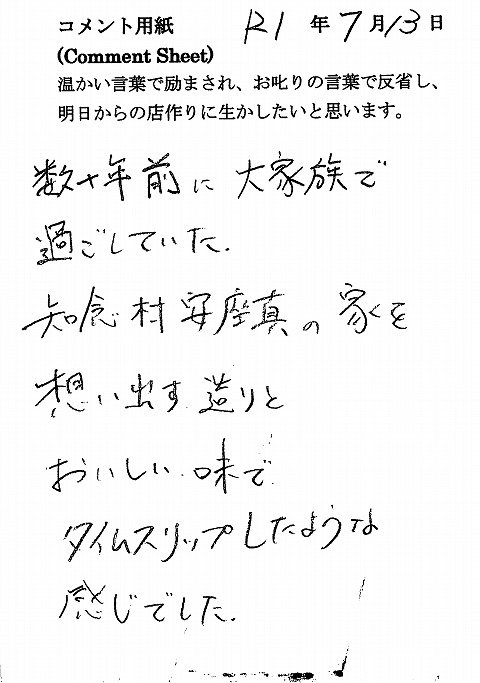 コメント用紙 R1 年 7 月 13 日
(Comment Sheet)
温かい言葉で励まされ、お叱りの言葉で反省し、
明日からの店作りに生かしたいと思います。
数十年前に大家族で
過ごしていた.
知念村安座真の家を
想い出す造りと
おいしい味で
タイムスリップしたような
感じでした.